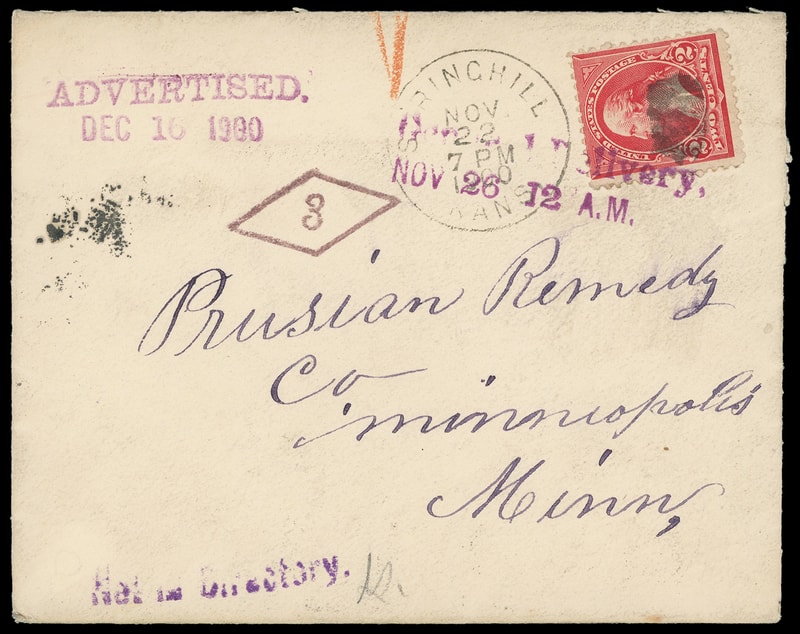 ADVERTISED.
DEC 16 1900
SPRINGHILL
NOV
22
7 PM
1900
KANS
UNITED STATES POSTAGE
2 2
TWO CENTS
Delivery,
NOV 26 12 A.M.
3
Prusian Remedy
Co
minneopolis
Minn,
Not in Directory.